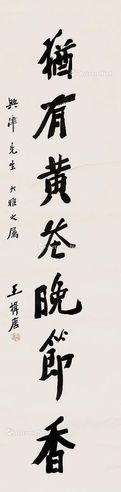 猶有黄花晚節香
興準先生大雅之属
王揖唐